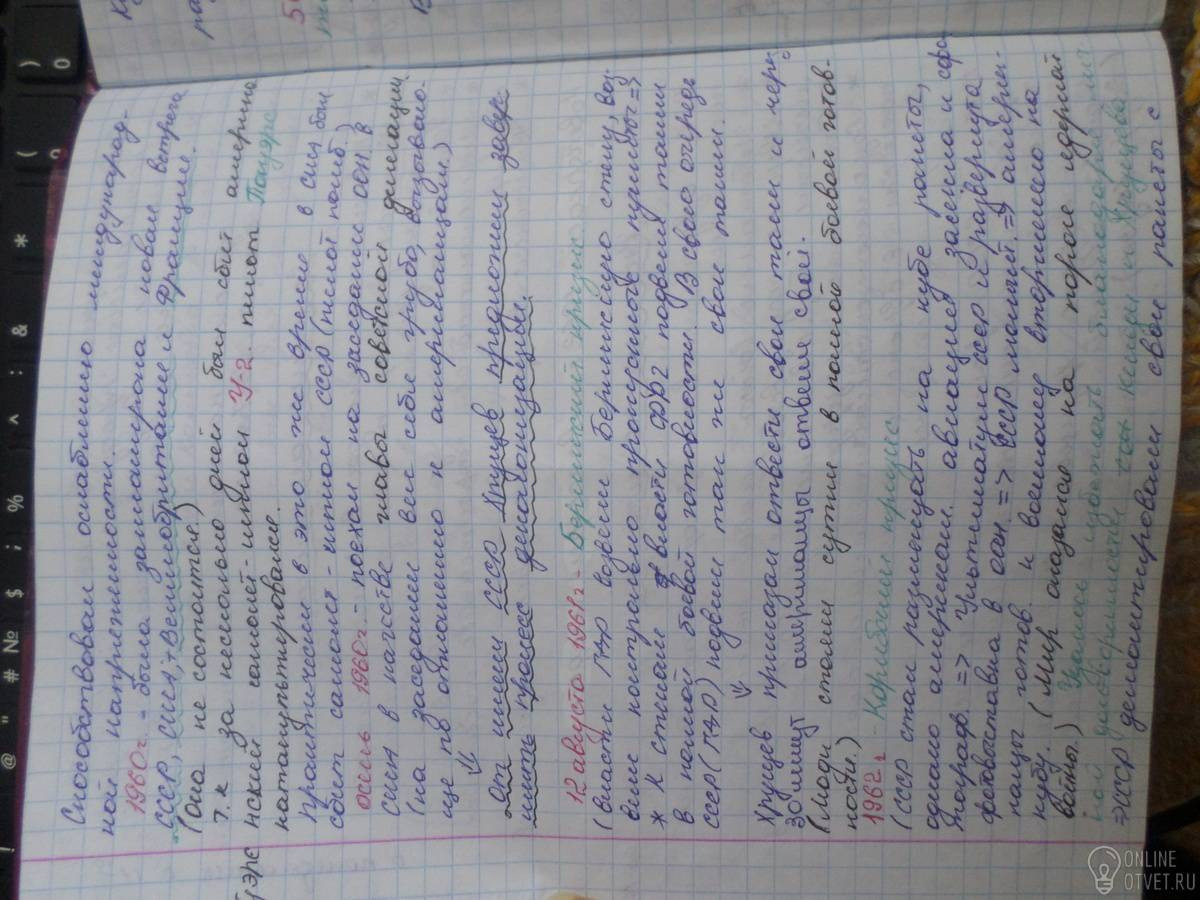 Способствовал ослаблению международ-
ной напряженности.
1960г. - была запланирована новая встреча
СССР, США + Великобритания и Франция.
(Она не состоится.)
т.к за несколько дней был сбит америка
нский самолёт-шпион У-2. пилот Пауэрс
катапультировался.
Практически в это же время в США был
сбит самолет - шпион СССР (пилот погиб)
осень 1960г. - поехал на заседание ООН в
США в качестве главы советской делегации
(на заседании вел себя грубо, вызываю-
ще по отношению к американцам.)
От имени СССР Хрущев предложил завер-
шить процесс деколонизации.
12 августа 1961г - Берлинский кризис
(власти ГДР возвели Берлинскую стену, воз-
вели контрольно пропускные пункты =>
* К стенам власти ФРГ подвели танки
в полной боевой готовности. В свою очередь
СССР (ГДР) подвели так же свои танки.
Хрущев приказал отвести свои танки и через
30 минут американцы отвели свои.
(Люди стояли сутки в полной боевой готов-
ности.)
1962г - Карибский кризис
(СССР стал размещать на кубе ракеты,
однако американск. авиация засекла и сфо
тограф. => Ультиматум СССР и развернута
фотовыставка в ООН => СССР молчит. => америка-
нцы готов. к военному вторжению на
кубу. (Мир оказался на пороге ядерной
войны.) Удалось избежать благодаря
Кенеди и Хрущева
СССР демонтировали свои ракеты с
! @ " # № $ ; % ^ : & * ( )
0
ONLINE
OTVET.RU